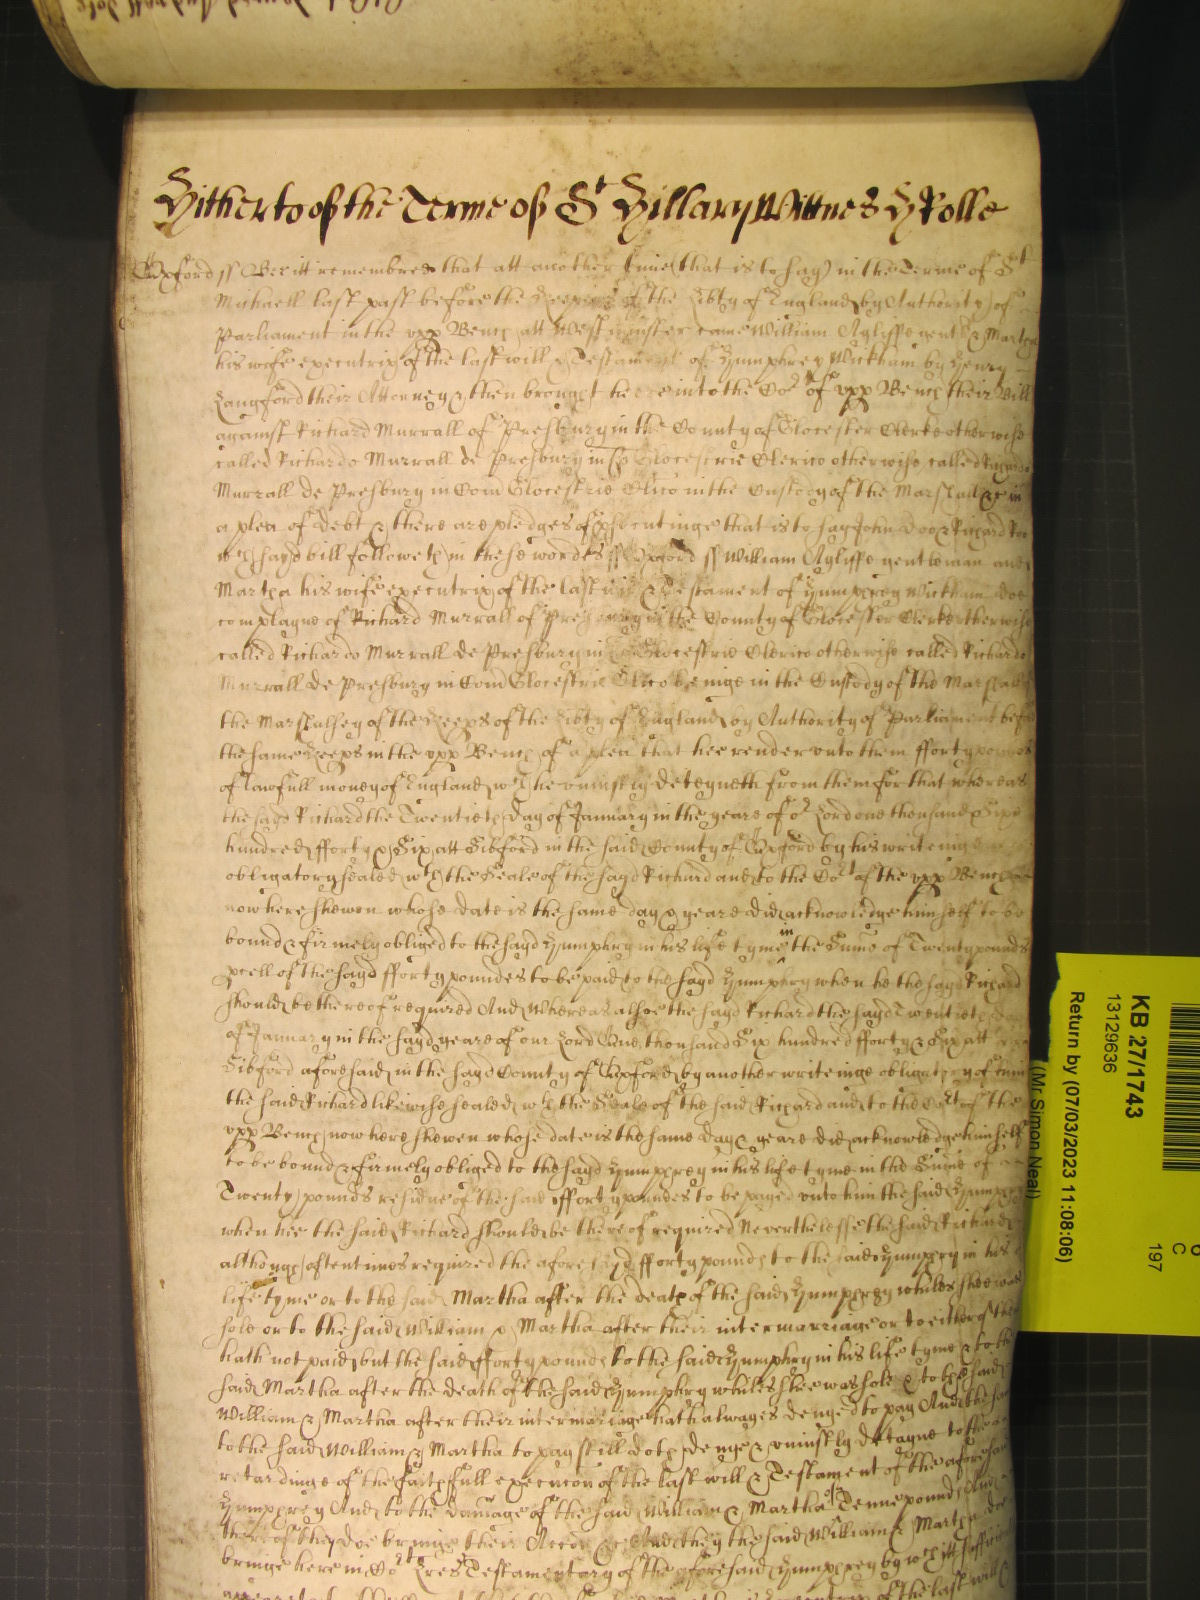 Hitherto of the Terme of St Hillary Wittnes H Rolle
Oxford ss Bee itt remembred that att another time (that is to say) in the Terme of St
Michaell last past before the Keepers of the Libty of England by Authority of
Parliament in the upp Bench att Westminster came William Ayliffe gent & Martha
his wife executrix of the last will & Testament of Humphrey Wickham by Henry
Langford their Attorney & then brought here into the Cort of upp Bench their Bill
against Richard Murrall of Presbury in the County of Glocester Clerke otherwise
called Richardo Murrall de Presbury in Glocestrie Clerico otherwise called Richardo
Murrall de Presbury in Com Glocestrie Clico in the Custody of the Marshall &c in
a plea of Debt & there are pledges of psecutinge that is to say John Doe & Richard Roe
wch sayd bill followeth in these wordes ss Oxford ss William Ayliffe gentleman and
Martha his wife executrix of the last will & Testament of Humphrey Wickham doe
complayne of Richard Murrall of Presbury in the County of Glocester Clerke otherwise
called Richardo Murrall de Presbury in Glocestrie Clerico otherwise called Richardo
Murrall de Presbury in Com Glocestrie Clico beinge in the Custody of the Marshall of
the Marshalsey of the Keeps of the Libty of England by Authority of Parliament before
the same Keeps in the upp Bench of a plea that hee render unto them fforty pounds
of lawfull money of England wch he uniustly deteyneth from them for that whereas
the sayd Richard the Twentieth day of January in the yeare of or Lord one thousand Sixe
hundred fforty & Six att Sibford in the said County of Oxford by his writeinge
obligatory sealed wth the Seale of the sayd Richard and to the Cort of the upp Bench
now here shewen whose date is the same day & yeare did acknowledge himself to be
bound & firmely obliged to the sayd Humphry in his life tyme in the Sume of Twenty pounds
pcell of the sayd fforty poundes to be paid to the sayd Humphry when he the sayd Richard
should be thereof required And Whereas alsoe the sayd Richard the sayd Twentieth day
of January in the sayd yeare of our Lord One thousand Six hundred fforty & Six att
Sibford aforesaid in the sayd County of Oxford by another writeinge obligatory of him
the said Richard likewise sealed wth the Seale of the said Richard and to the Cort of the
upp Bench now here shewen whose date is the same day & yeare did acknowledge himself
to be bound & firmely obliged to the sayd Humphrey in his life tyme in the Sume of
Twenty pounds residue of the said fforty poundes to be payed unto him the said Humphrey
when hee the said Richard should be thereof required Neverthelesse the said Richard
although oftentimes required the aforesayd fforty pounds to the said Humphry in his
life tyme or to the said Martha after the death of the said Humphrey whiles shee was
sole or to the said William & Martha after their intermarriage or to either of them
hath not paid but the said fforty pounds to the said Humphry in his life tyme & to the
said Martha after the death of the said Humphry whiles shee was sole & to the said
William & Martha after their intermariage hath alwayes denyed to pay And the same
to the said William & Martha to pay still doth denye & uniustly detayne to the
retardinge of the faithfull execucon of the last will & Testament of the aforesaid
Humphrey And to the damage of the said William & Martha of Tenne pounds And
thereof they doe bringe their Accon &c And they the said William & Martha doe
bringe here in Cort Lres Testamentary of the aforesaid Humphrey by wch itt sufficiently
of the last will
KB 27/1743
13129636
Return by (07/03/2023 11:08:06)
(Mr Simon Neal)
C
197